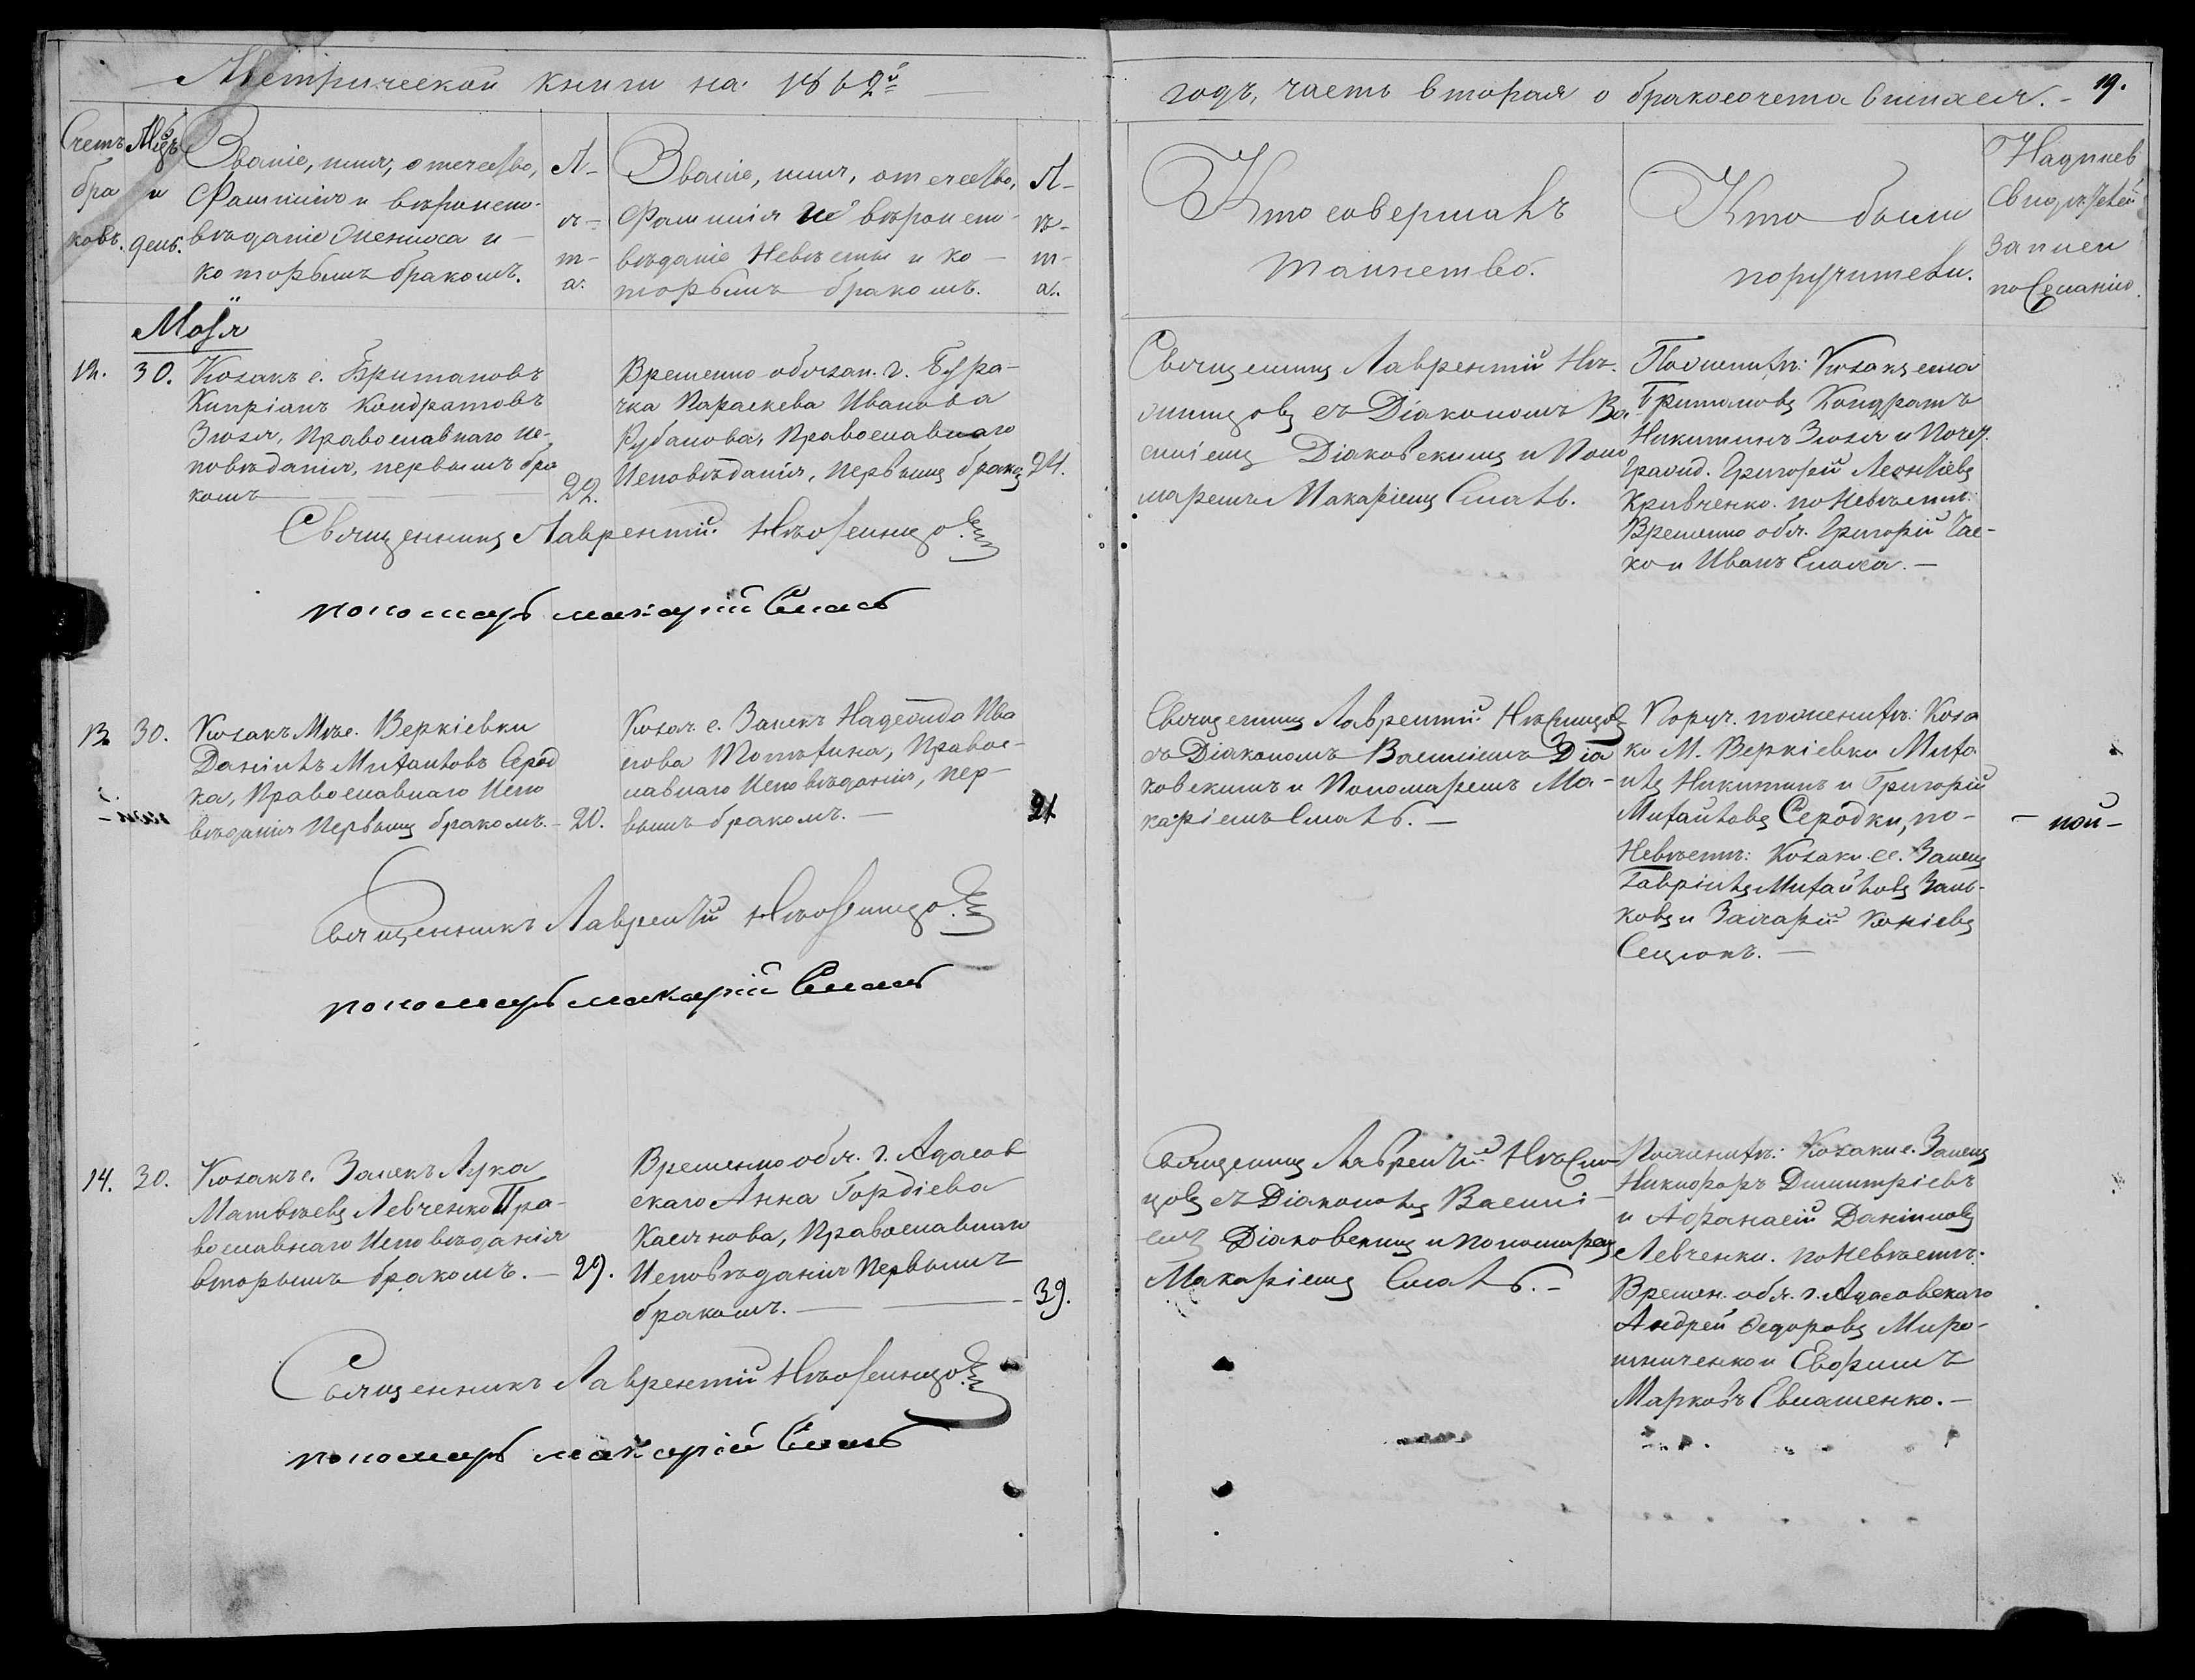 Метрической книги на 1862й
годъ, часть вторая о бракосочетавшихся. - 19.
Счетъ бра ковъ.
Мѣцъ и день.
Званіе, имя, отчество,
Фамилія и вѣроиспо-
вѣданіе Жениха и
которымъ бракомъ.
Л-
ѣ-
т-
а.
Званіе, имя, отчество,
Фамилія и вѣроиспо-
вѣданіе Невѣсты и ко-
торымъ бракомъ.
Л-
ѣ-
т-
а.
Кто совершалъ
таинство.
Кто были
поручители.
Свидѣтелей
записи
по
Маія
12. 30.
Козакъ с. Британовъ
Кипріанъ Кондратовъ
Зюзя, Православнаго Ис-
повѣданія, первымъ бра
комъ 22.
Временно обязан. г. Бура-
чка Параскева Иванова
Рубанова, Православнаго
Исповѣданія, первымъ бракомъ 24.
Священникъ Лаврентій
съ Діакономъ Ва
силіемъ Діаковскимъ и Поно
маремъ Макаріемъ Смалъ.
По женихѣ: Козакъ села
Британовъ Кондратъ
Никитинъ Зюзя и
Григорій Леонтіевъ
Кривченко. по Невѣстѣ:
Временно обяз. Григорій
ко и Иванъ
Священникъ Лаврентій
пономарь макарій Смаль
13. 30.
Козакъ Мѣс. Веркіевки
Даніилъ Михаиловъ Серед
ка, Православнаго Испо
вѣданія первымъ бракомъ. - 20.
Козач. с. Заньк Надежда Ива
нова Потѣхина, Правос-
лавнаго Исповѣданія, пер-
вымъ бракомъ. - 21
Священникъ Лаврентій
съ Діакономъ Василіемъ Діа
ковскимъ и Пономаремъ Ма-
каріемъ Смалъ. -
Поруч. по женихѣ: Коза
ки М. Веркіевки Миха
илъ Никитинъ и Григорій
Михаиловъ Середки, по-
Невѣстѣ: Козаки с. Занекъ
Гавріилъ Михаиловъ Зань-
ковъ и Захарій
- ной -
Священникъ Лаврентій
пономарь макарій Смаль
14. 30.
Козакъ с. Занекъ Лука
Матвѣевъ Левченко Пра-
вославнаго Исповѣданія
вторымъ бракомъ. - 29.
Временно обяз. г. Адасов
скаго Анна Гордіева
Касянова, Православнаго
Исповѣданія Первымъ
бракомъ. - 39.
Священникъ Лаврентій
съ Діакономъ Васили
емъ Діаковскимъ и пономаремъ
Макаріемъ Смалъ. -
По женихѣ: Козаки с. Занекъ
Никифоръ Димитріевъ
и Афанасій Даніиловъ
Левченки. по Невѣстѣ:
Времен. обяз. г. Адасовскаго
Андрей Федоровъ Миро-
шниченко и Евфимъ
Марковъ Евлашенко. -
Священникъ Лаврентій
пономарь макарій Смаль